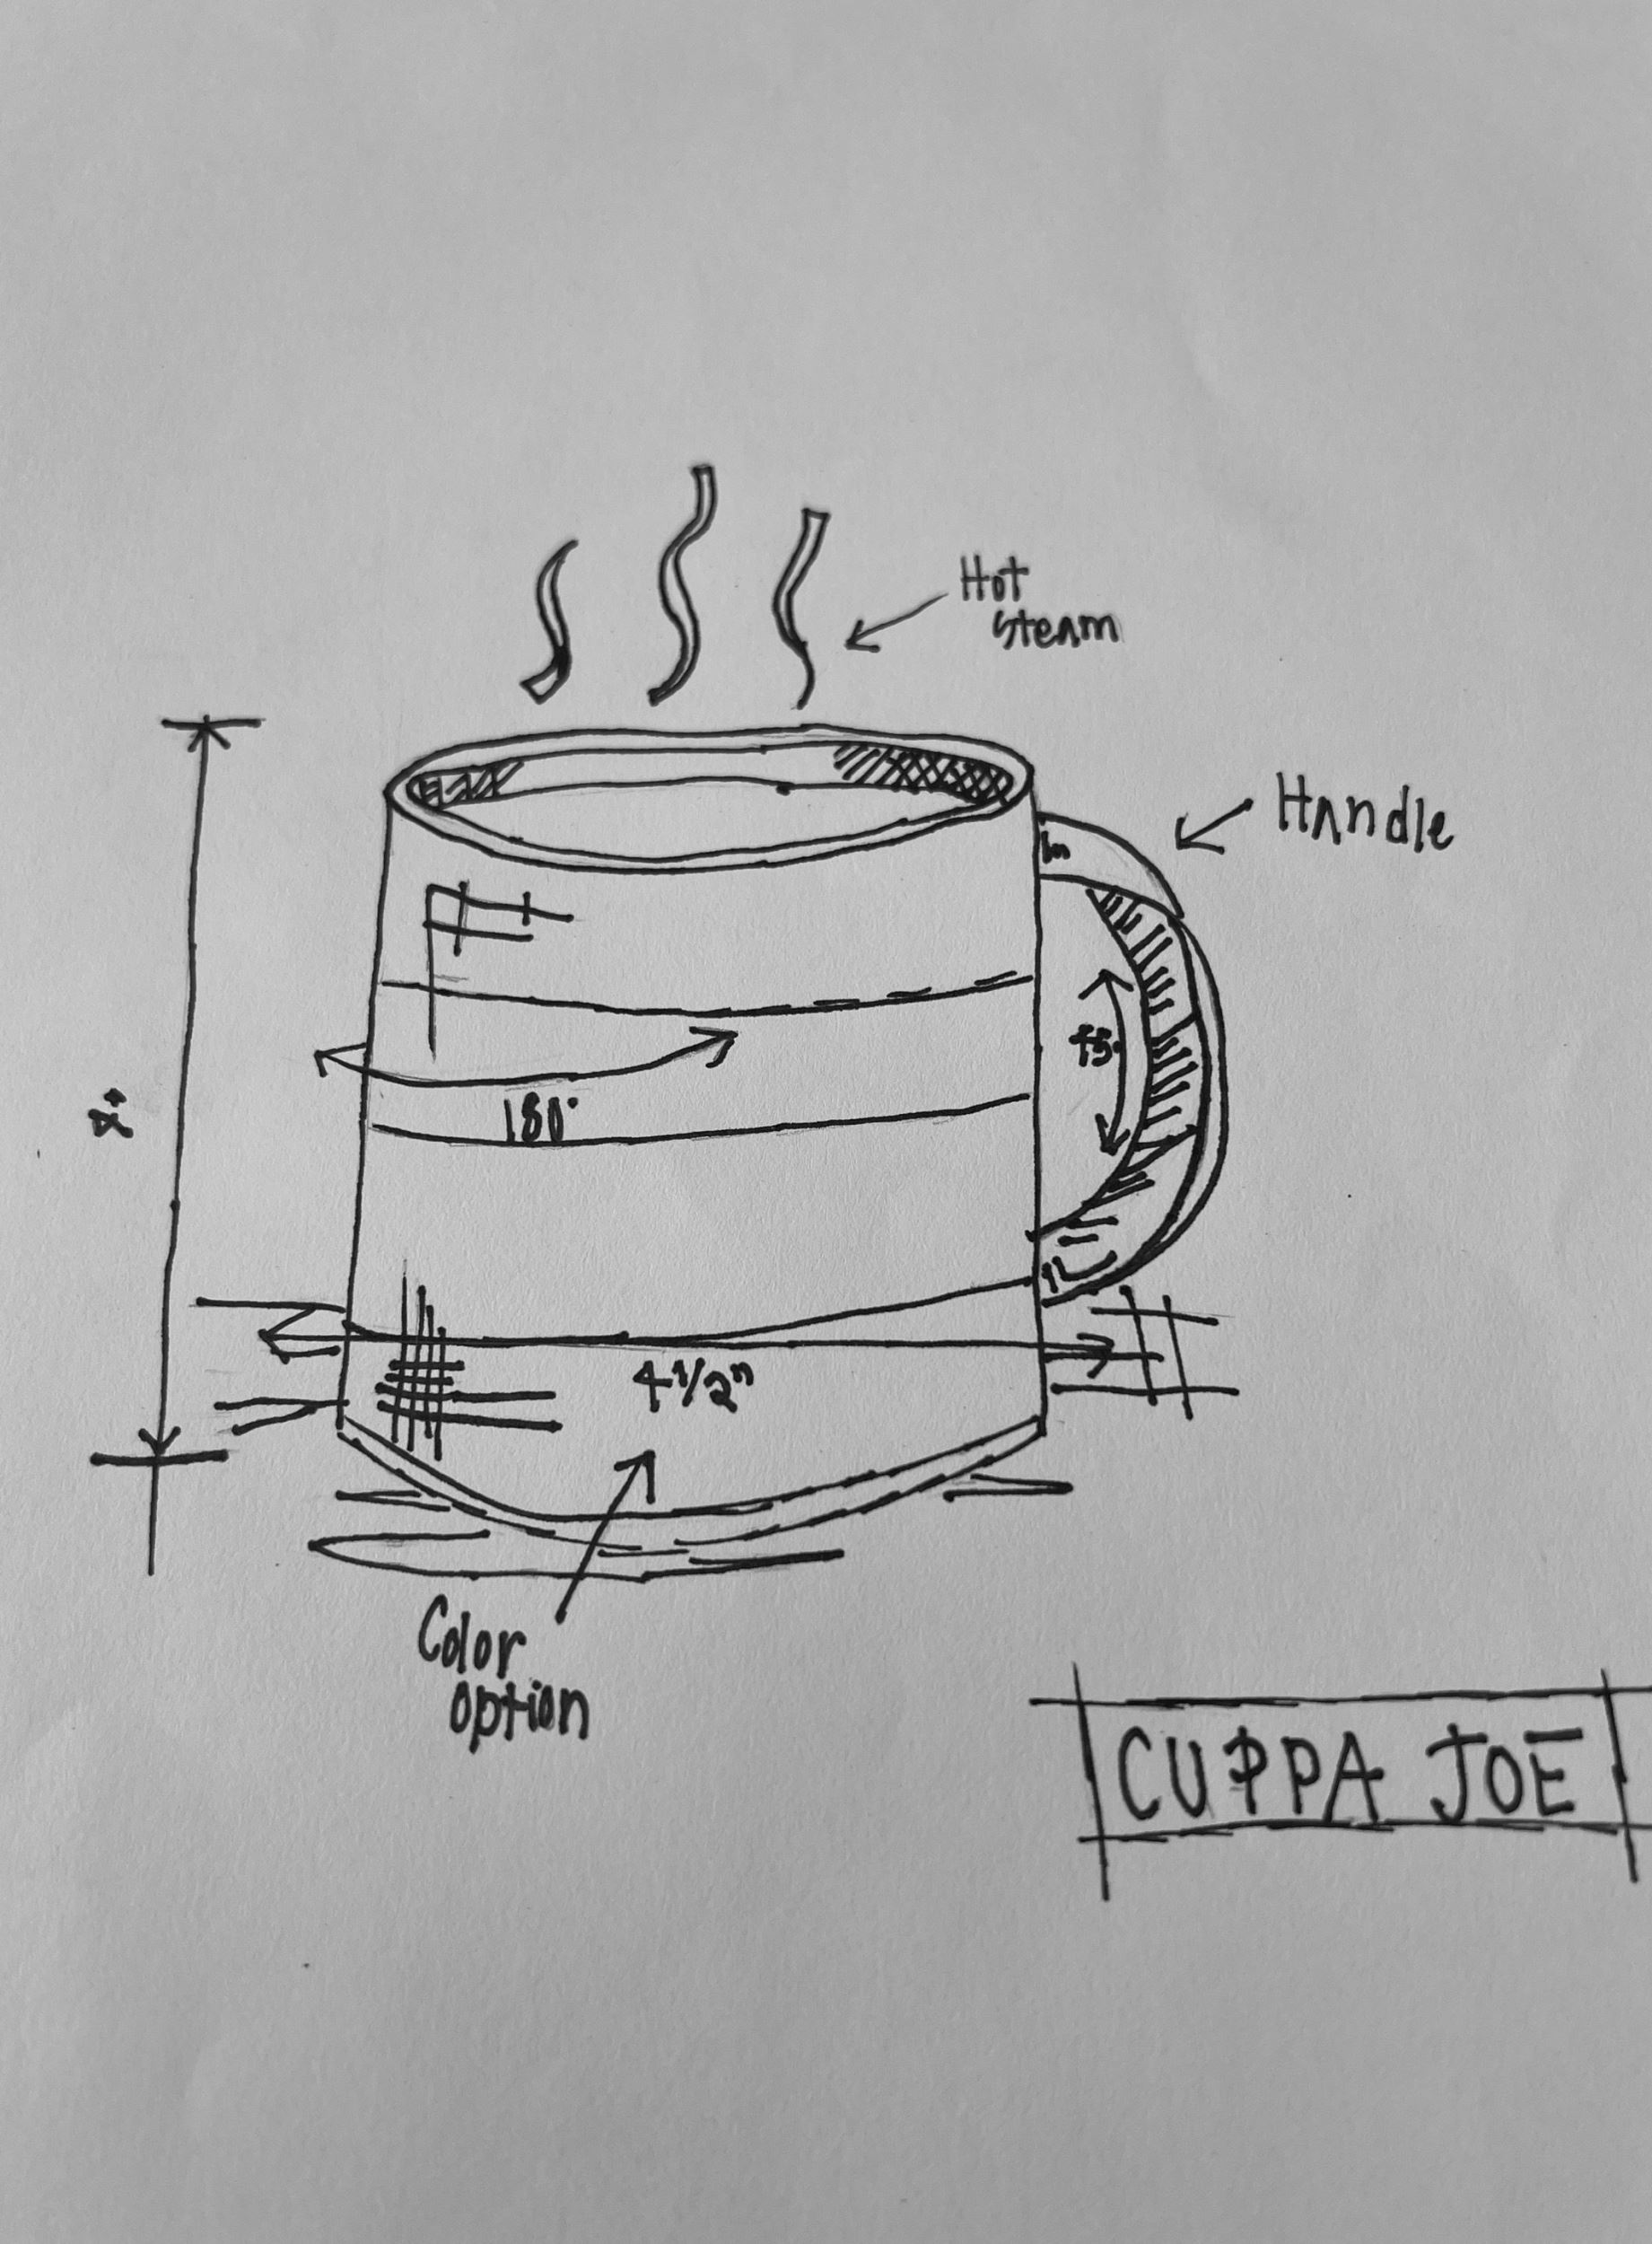 Hot
Steam
Handle
180°
4 1/2"
Color
Option
CUPPA JOE